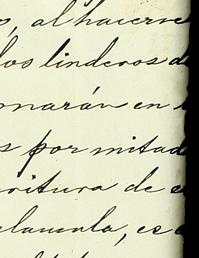 , al hacerse
los linderos d
marán en l
s por mitad
critura de e
clamula, es